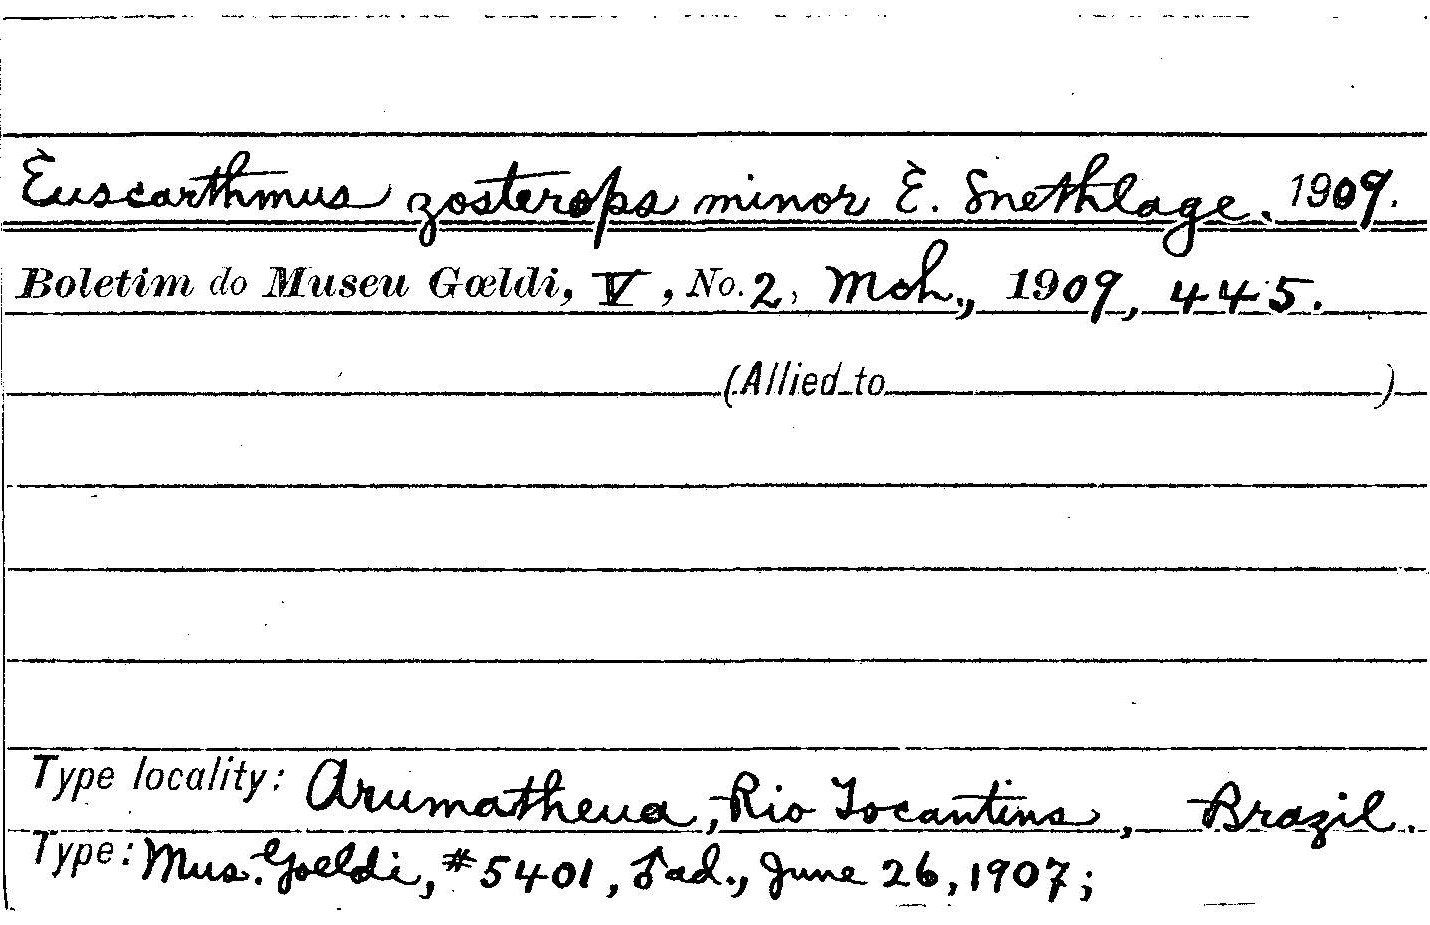 Euscarthmus zosterops minor E. Snethlage, 1909.
Boletim do Museu Gœldi, V, No. 2, Mch., 1909, 445.
(Allied to )
Type locality: Arumatheua, Rio Tocantins, Brazil.
Type: Mus. Goeldi, #5401, ♂ ad., June 26, 1907;